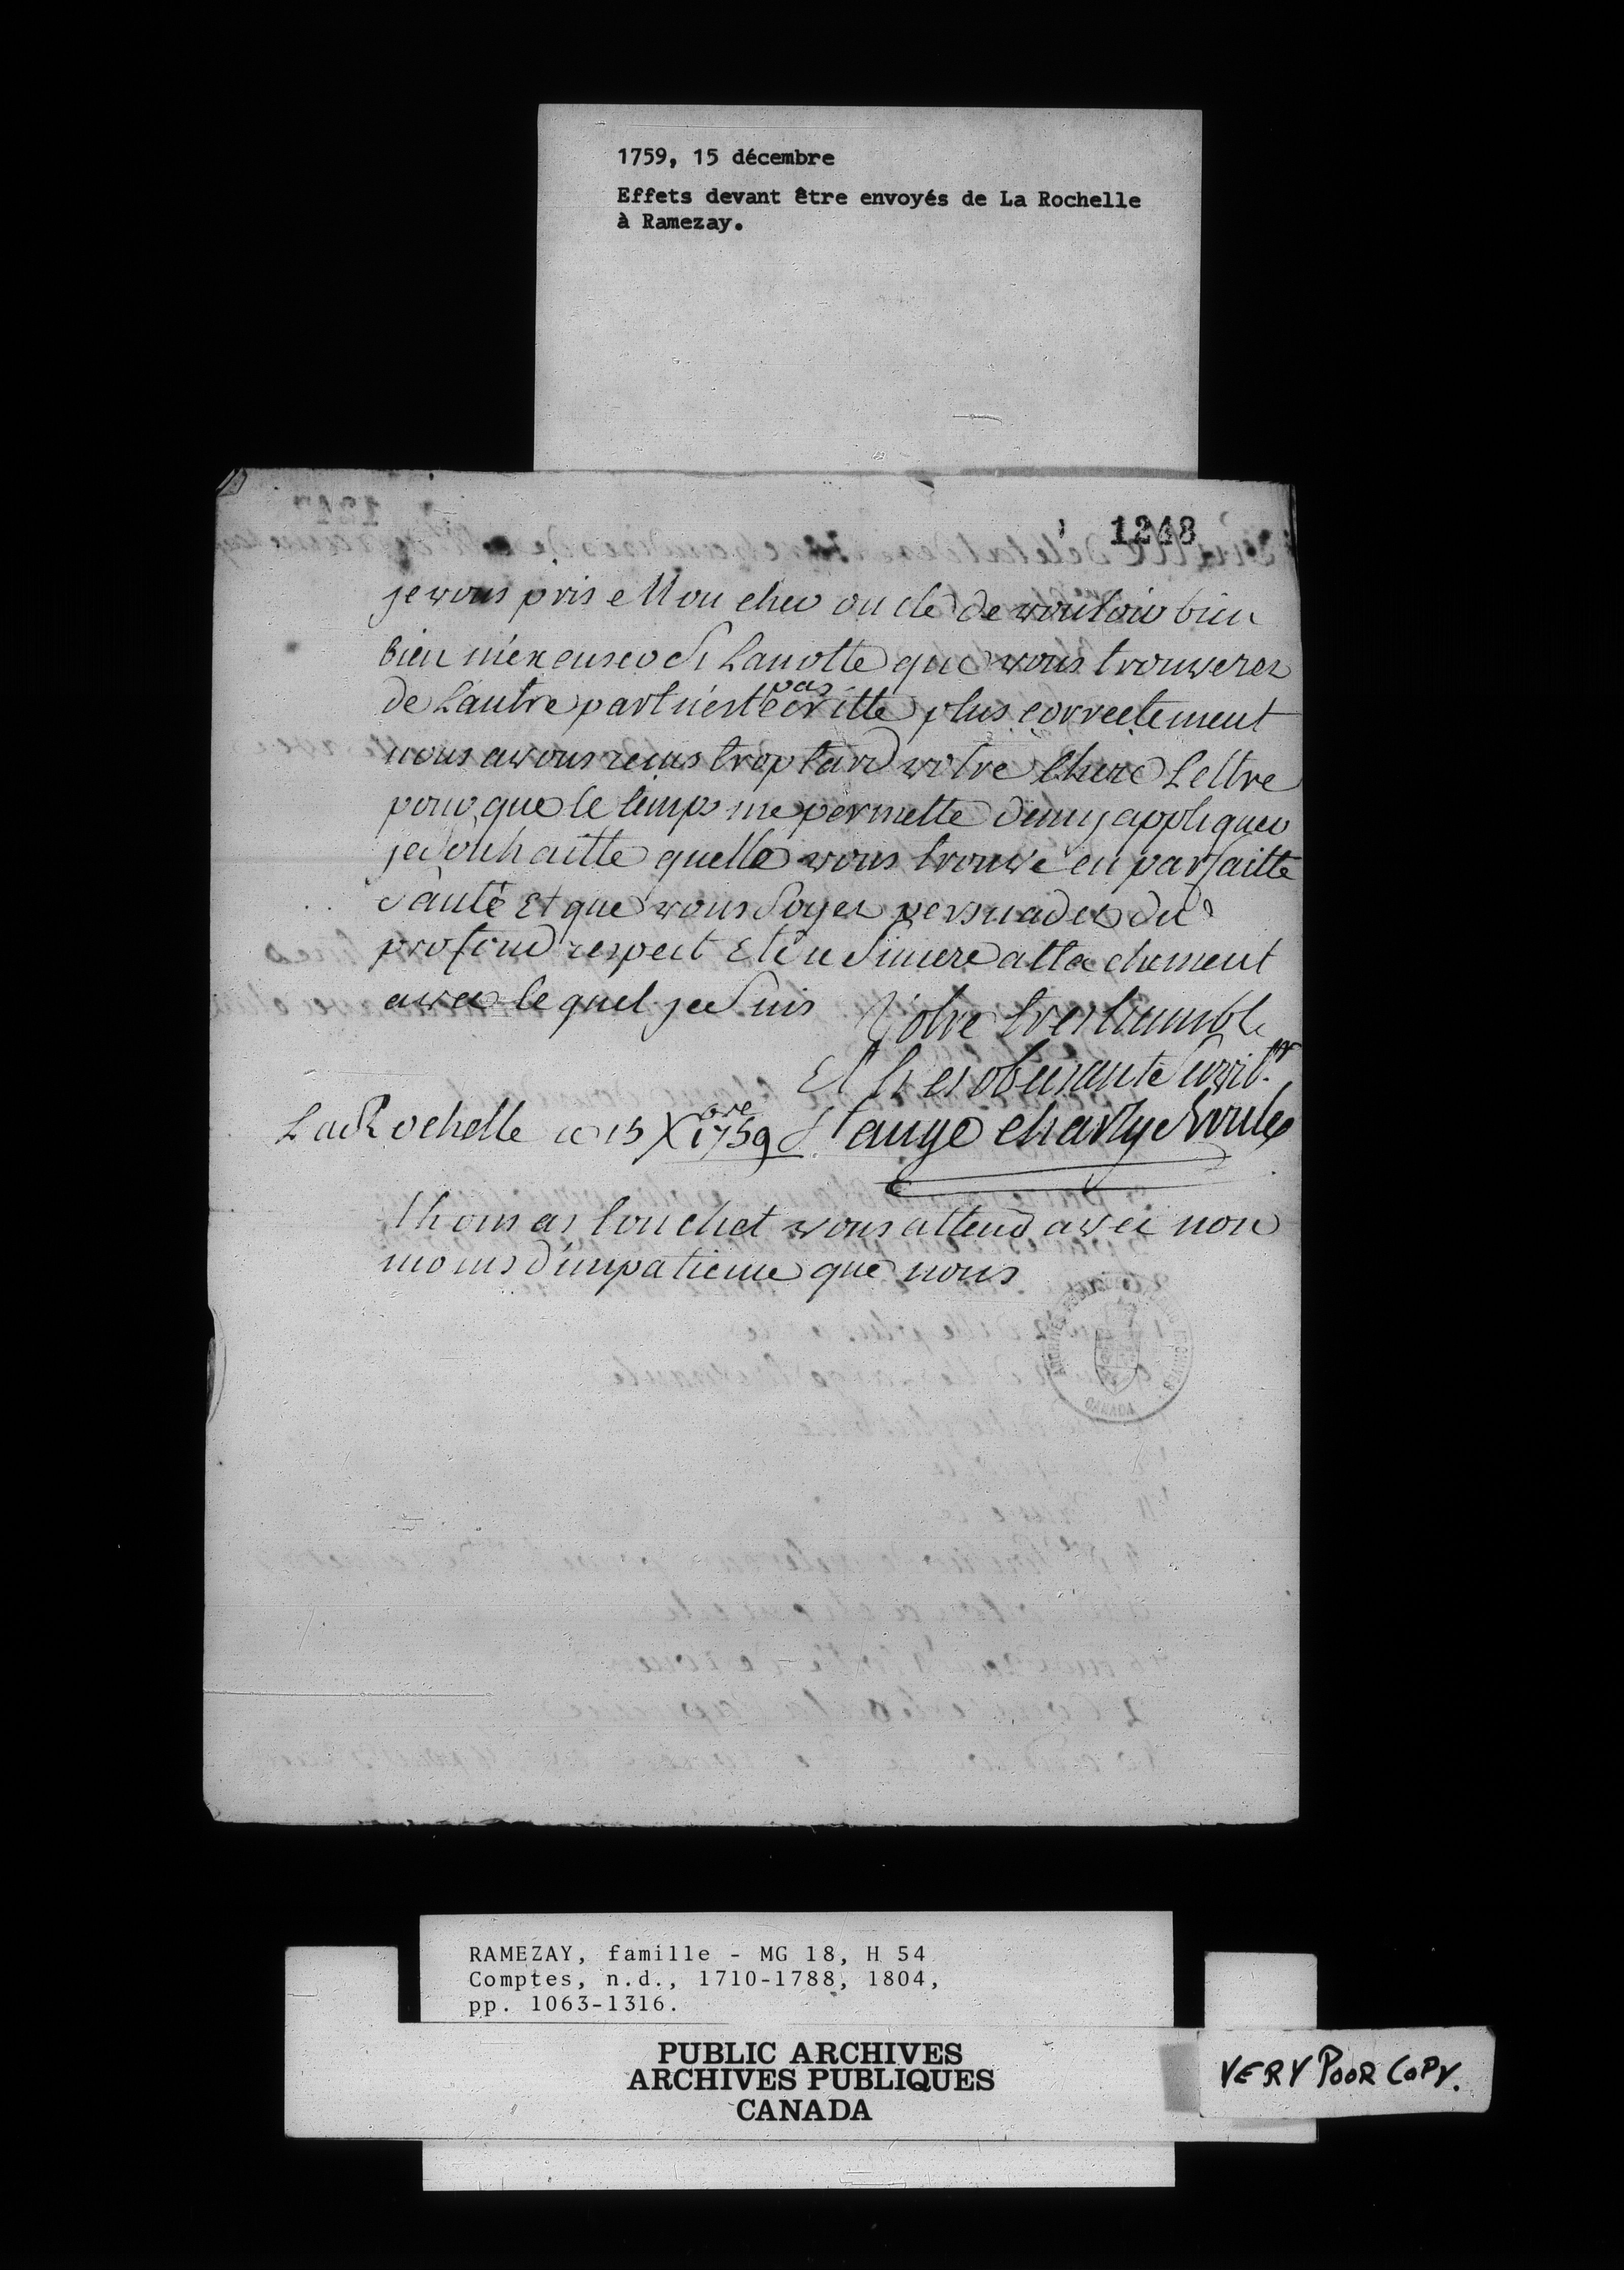 1759, 15 décembre
Effets devant être envoyés de La Rochelle
à Ramezay.
1248
je vous pris e Mon cher oncle de vouloir bien
bien m'exenser Si La notte que vous trouverez
de Lautre part n'est pas écritte plus correctement
nous avons recus trop tard votre Chere Lettre
pour que le temps me permette d'emy appliquer
je Souhaitte quelle vous trouve en parfaitte
Santé Et que vous Soyez persuadez du
profond respect Et du Sincere attachement
avec le quel je Suis Votre tres humble
Et tres obeisante
La Rochelle ce 15 Xbre 1759 St ange charly
thomas touchet vous attend avec non
moins d'impatience que nous
ARCHIVES
CANADA
RAMEZAY, famille - MG 18, H 54
Comptes, n.d., 1710-1788, 1804,
pp. 1063-1316.
PUBLIC ARCHIVES
ARCHIVES PUBLIQUES
CANADA
VERY POOR COPY.